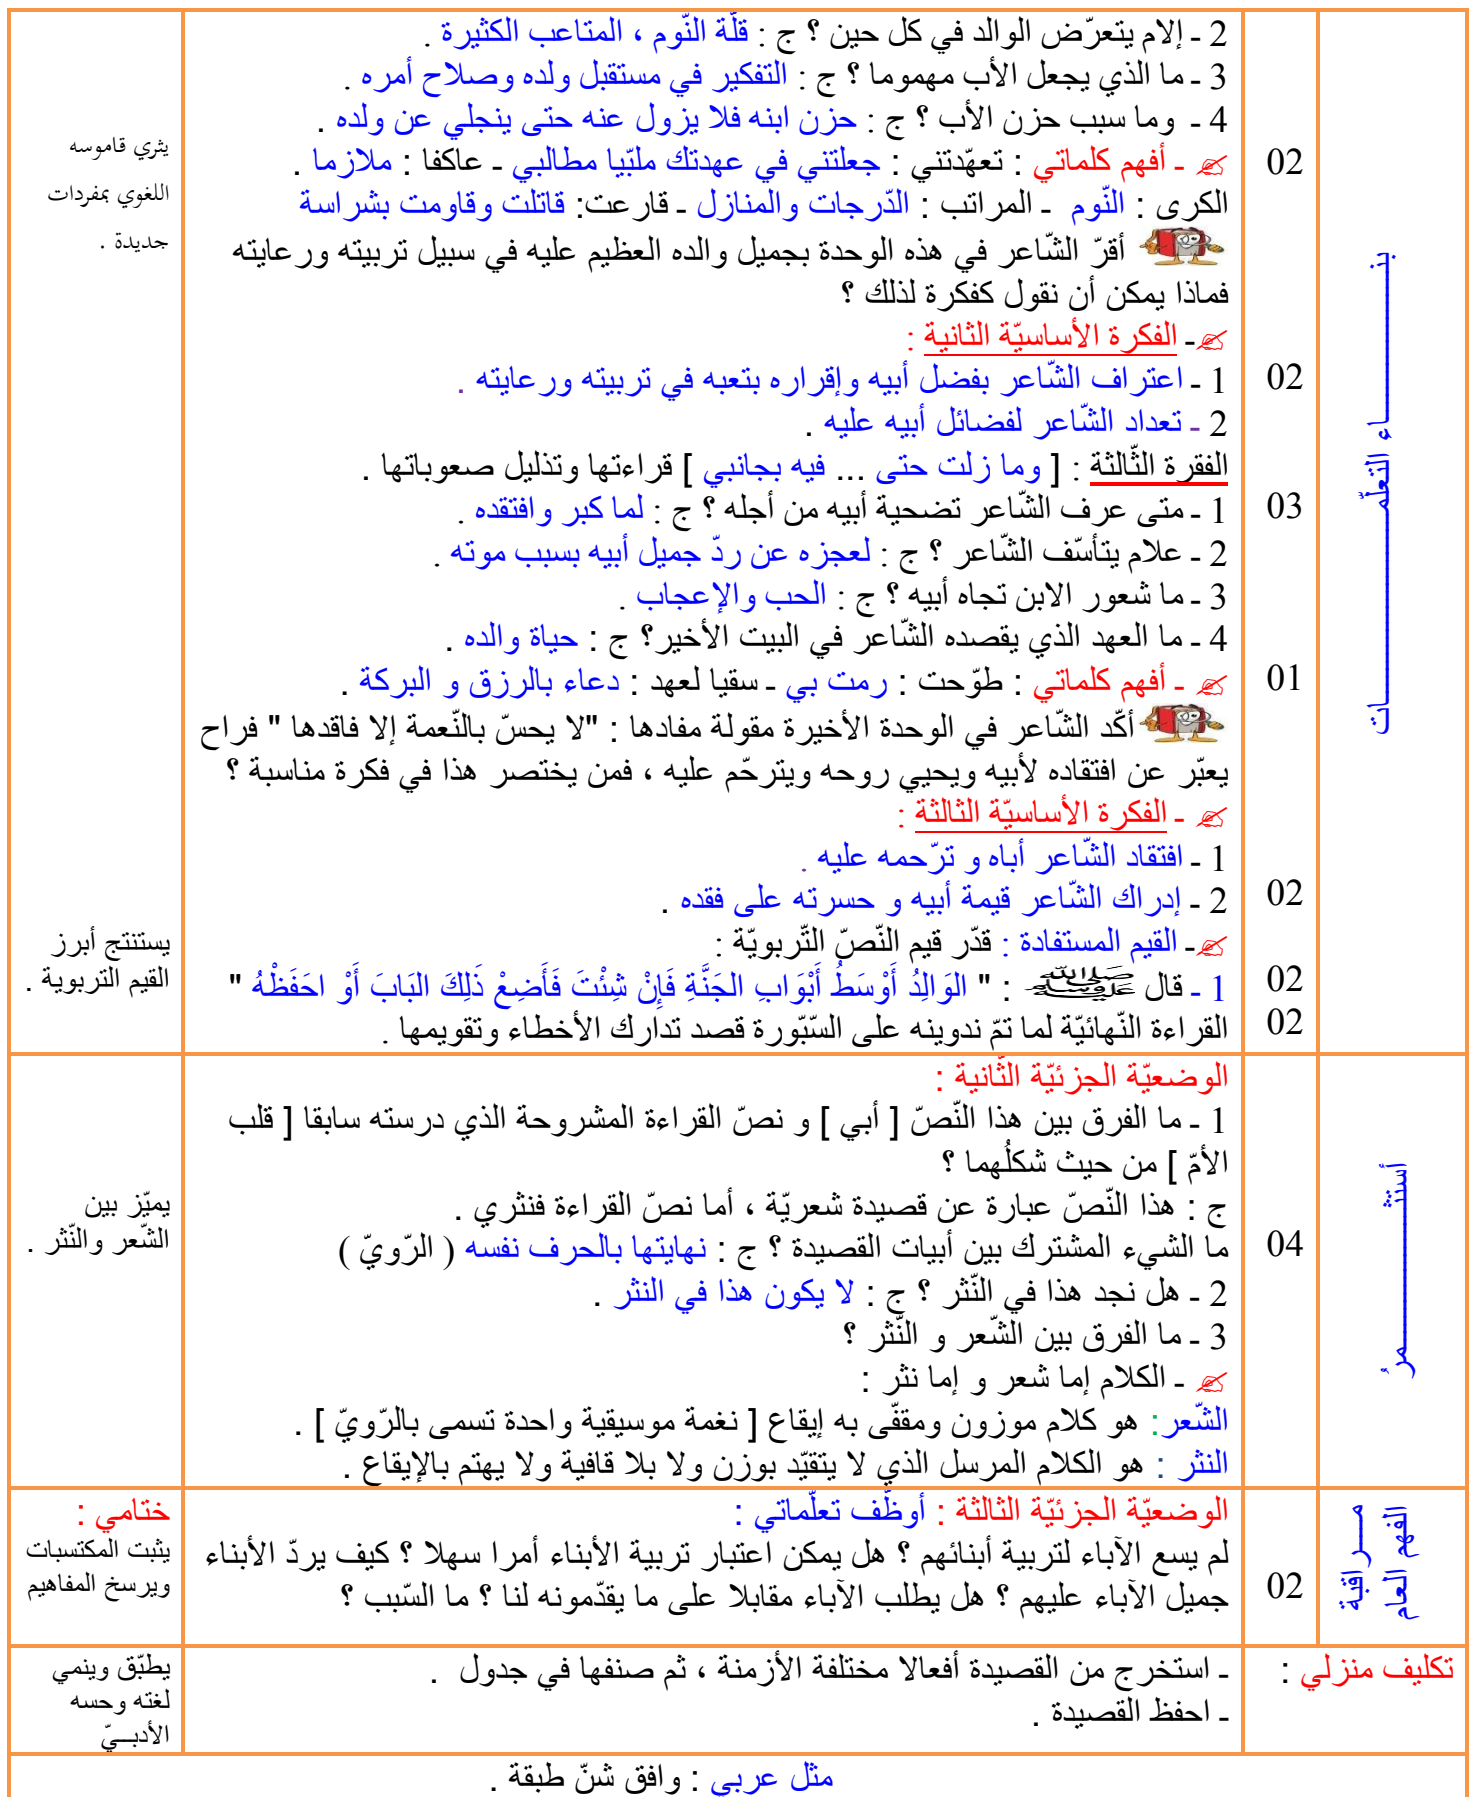 2 ـ إلام يتعرّض الوالد في كل حين ؟ ج : قلّة النّوم ، المتاعب الكثيرة .
3 ـ ما الذي يجعل الأب مهموما ؟ ج : التفكير في مستقبل ولده وصلاح أمره .
4 ـ وما سبب حزن الأب ؟ ج : حزن ابنه فلا يزول عنه حتى ينجلي عن ولده .
ـ أفهم كلماتي : تعهّدتني : جعلتني في عهدتك ملبّيا مطالبي ـ عاكفا : ملازما .
الكرى : النّوم ـ المراتب : الدّرجات والمنازل ـ قارعت: قاتلت وقاومت بشراسة
أقرّ الشّاعر في هذه الوحدة بجميل والده العظيم عليه في سبيل تربيته ورعايته
فماذا يمكن أن نقول كفكرة لذلك ؟
ـ الفكرة الأساسيّة الثانية :
1 ـ اعتراف الشّاعر بفضل أبيه وإقراره بتعبه في تربيته ورعايته .
2 ـ تعداد الشّاعر لفضائل أبيه عليه .
الفقرة الثّالثة : [ وما زلت حتى ... فيه بجانبي ] قراءتها وتذليل صعوباتها .
1 ـ متى عرف الشّاعر تضحية أبيه من أجله ؟ ج : لما كبر وافتقده .
2 ـ علام يتأسّف الشّاعر ؟ ج : لعجزه عن ردّ جميل أبيه بسبب موته .
3 ـ ما شعور الابن تجاه أبيه ؟ ج : الحب والإعجاب .
4 ـ ما العهد الذي يقصده الشّاعر في البيت الأخير؟ ج : حياة والده .
ـ أفهم كلماتي : طوّحت : رمت بي ـ سقيا لعهد : دعاء بالرزق و البركة .
أكّد الشّاعر في الوحدة الأخيرة مقولة مفادها : "لا يحسّ بالنّعمة إلا فاقدها " فراح
يعبّر عن افتقاده لأبيه ويحيي روحه ويترحّم عليه ، فمن يختصر هذا في فكرة مناسبة ؟
ـ الفكرة الأساسيّة الثالثة :
1 ـ افتقاد الشّاعر أباه و ترّحمه عليه .
2 ـ إدراك الشّاعر قيمة أبيه و حسرته على فقده .
ـ القيم المستفادة : قدّر قيم النّصّ التّربويّة :
1 ـ قال ﷺ : " الوَالِدُ أَوْسَطُ أَبْوَابِ الجَنَّةِ فَإِنْ شِئْتَ فَأَضِعْ ذَلِكَ البَابَ أَوْ احَفَظْهُ "
القراءة النّهائيّة لما تمّ ندوينه على السّبّورة قصد تدارك الأخطاء وتقويمها .
بنــــاء التعلّمــــات
02
02
03
01
02
02
02
يثري قاموسه
اللغوي بمفردات
جديدة .
يستنتج أبرز
القيم التربوية .
الوضعيّة الجزئيّة الثّانية :
1 ـ ما الفرق بين هذا النّصّ [ أبي ] و نصّ القراءة المشروحة الذي درسته سابقا [ قلب
الأمّ ] من حيث شكلُهما ؟
ج : هذا النّصّ عبارة عن قصيدة شعريّة ، أما نصّ القراءة فنثري .
ما الشيء المشترك بين أبيات القصيدة ؟ ج : نهايتها بالحرف نفسه ( الرّويّ )
2 ـ هل نجد هذا في النّثر ؟ ج : لا يكون هذا في النثر .
3 ـ ما الفرق بين الشّعر و النّثر ؟
ـ الكلام إما شعر و إما نثر :
الشّعر: هو كلام موزون ومقفّى به إيقاع [ نغمة موسيقية واحدة تسمى بالرّويّ ] .
النثر : هو الكلام المرسل الذي لا يتقيّد بوزن ولا بلا قافية ولا يهتم بالإيقاع .
أستثــــمرُ
04
يميّز بين
الشّعر والنّثر .
الوضعيّة الجزئيّة الثالثة : أوظّف تعلّماتي :
لم يسع الآباء لتربية أبنائهم ؟ هل يمكن اعتبار تربية الأبناء أمرا سهلا ؟ كيف يردّ الأبناء
جميل الآباء عليهم ؟ هل يطلب الآباء مقابلا على ما يقدّمونه لنا ؟ ما السّبب ؟
مــراقبة
الفهم العام
02
ختامي :
يثبت المكتسبات
ويرسخ المفاهيم
تكليف منزلي :
ـ استخرج من القصيدة أفعالا مختلفة الأزمنة ، ثم صنفها في جدول .
ـ احفظ القصيدة .
يطبّق وينمي
لغته وحسه
الأدبــيّ
مثل عربي : وافق شنّ طبقة .